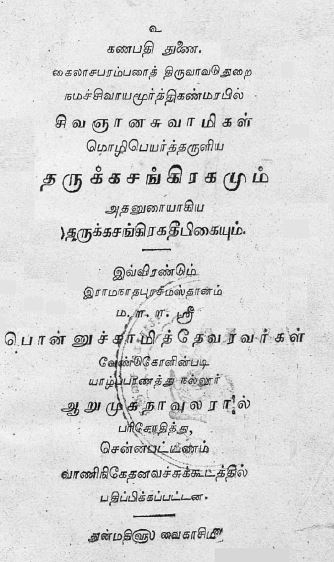 உ
கணபதி துணை.
கைலாசபரம்பரைத் திருவாவடுதுறை
நமச்சிவாயமூர்த்திகண்மரபில்
சிவஞானசுவாமிகள்
மொழிபெயர்த்தருளிய
தருக்கசங்கிரகமும்
அதனுரையாகிய
தருக்கசங்கிரகதீபிகையும்.
இவ்விரண்டும்
இராமநாதபுரசமஸ்தானம்
ம. ள. ள. ஸ்ரீ
பொன்னுச்சாமித்தேவரவர்கள்
வேண்டுகோளின்படி
யாழ்ப்பாணத்து நல்லூர்
ஆறுமுகநாவுலரால்
பரிசோதித்து,
சென்னபட்டணம்
வாணிநிகேதனவச்சுக்கூடத்தில்
பதிப்பிக்கப்பட்டன.
துன்மதி௵ வைகாசி௴